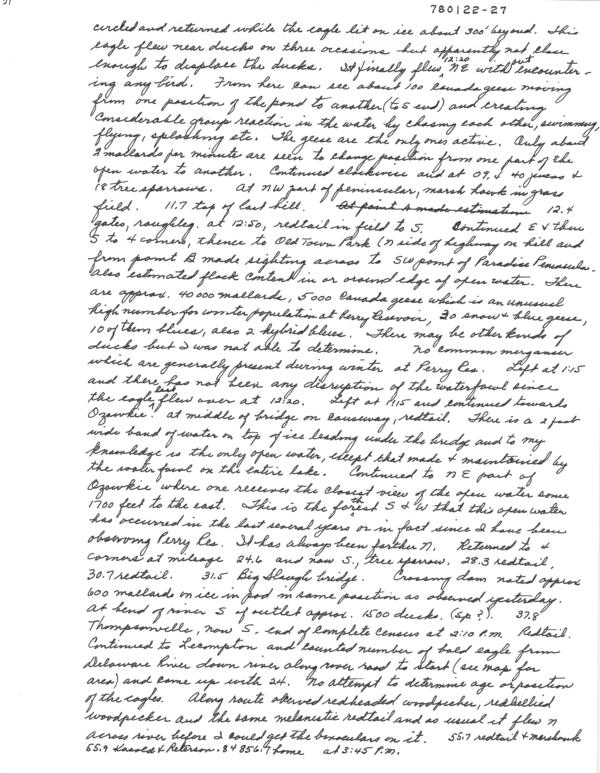 21
780122-27
circled and returned while the eagle lit on ice about 300' beyond. This
eagle flew near ducks on three occasions but apparently not close
enough to displace the ducks. It finally flew 12:20 NE without encounter-
ing any bird. From here can see about 100 Canada geese moving
from one position of the pond to another (to S end) and creating
considerable group reaction in the water by chasing each other, swimming,
flying, splashing etc. The geese are the only ones active. Only about
2 mallards per minute are seen to change position from one part of the
open water to another. Continued clockwise and at 09, 40 juncos &
18 tree sparrows. At NW part of peninsular, marsh hawk in grass
field. 11.7 top of last hill. At point A made estimation 12.4
gates, roughleg. at 12:50, redtail in field to S. Continued E & then
S to 4 corners, thence to Old Town Park (N side of highway on hill and
from point B made sighting across to SW point of Paradise Peninsula.
Also estimated flock content in or around edge of open water. There
are approx. 40000 mallards, 5000 Canada geese which is an unusual
high number for winter population at Perry Resevoir, 30 snow & blue geese,
10 of them blues, also 2 hybrid blues. There may be other kinds of
ducks but I was not able to determine. No common merganser
which are generally present during winter at Perry Res. Left at 1:15
and there has not been any disruption of the waterfowl since
the eagle last flew over at 12:20. Left at 1:15 and continued towards
Ozawkie. at middle of bridge on causeway, redtail. There is a 2 foot
wide band of water on top of ice leading under the bridge and to my
knowledge is the only open water, except that made & maintained by
the water fowl on the entire lake. Continued to NE part of
Ozawkie where one receives the closest view of the open water some
1700 feet to the east. This is the farthest S & W that this open water
has occurred in the last several years or in fact since I have been
observing Perry Res. It has always been farther N. Returned to 4
corners at mileage 24.6 and now S., tree sparrow. 28.3 redtail,
30.7 redtail. 31.5 Big Slough bridge. Crossing dam noted approx
600 mallards on ice in pod in same position as observed yesterday.
At bend of river S of outlet approx. 1500 ducks. (Sp?). 37.8
Thompsonville, now S. end of complete census at 2:10 P.M. Redtail.
Continued to Lecompton and counted number of bald eagle from
Delaware River down river along river road to start (see map for
area) and came up with 24. No attempt to determine age or position
of the eagles. Along route observed redheaded woodpecker, redbellied
woodpecker and the same melanistic redtail and as usual it flew N
across river before I could get the binoculars on it. 55.7 redtail & marshhawk
55.9 Kasold & Peterson. 84856.7 home at 3:45 P.M.